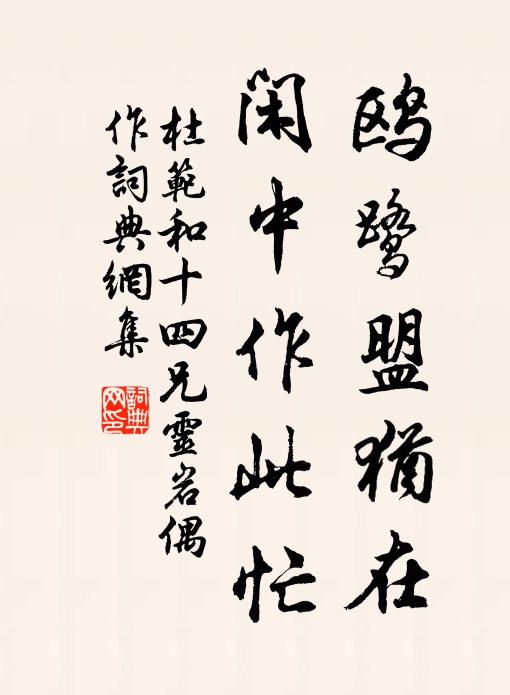 鸥鹭盟猶在
闲中作此忙
杜範和十四兄靈岩偶
作詞典網集
詞典网印